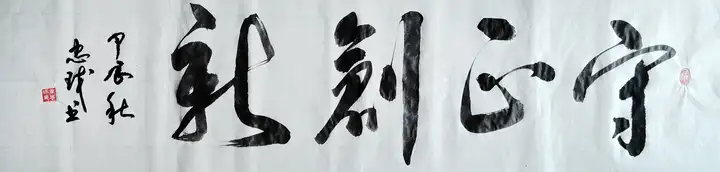 守正創新
甲辰秋
忠 书